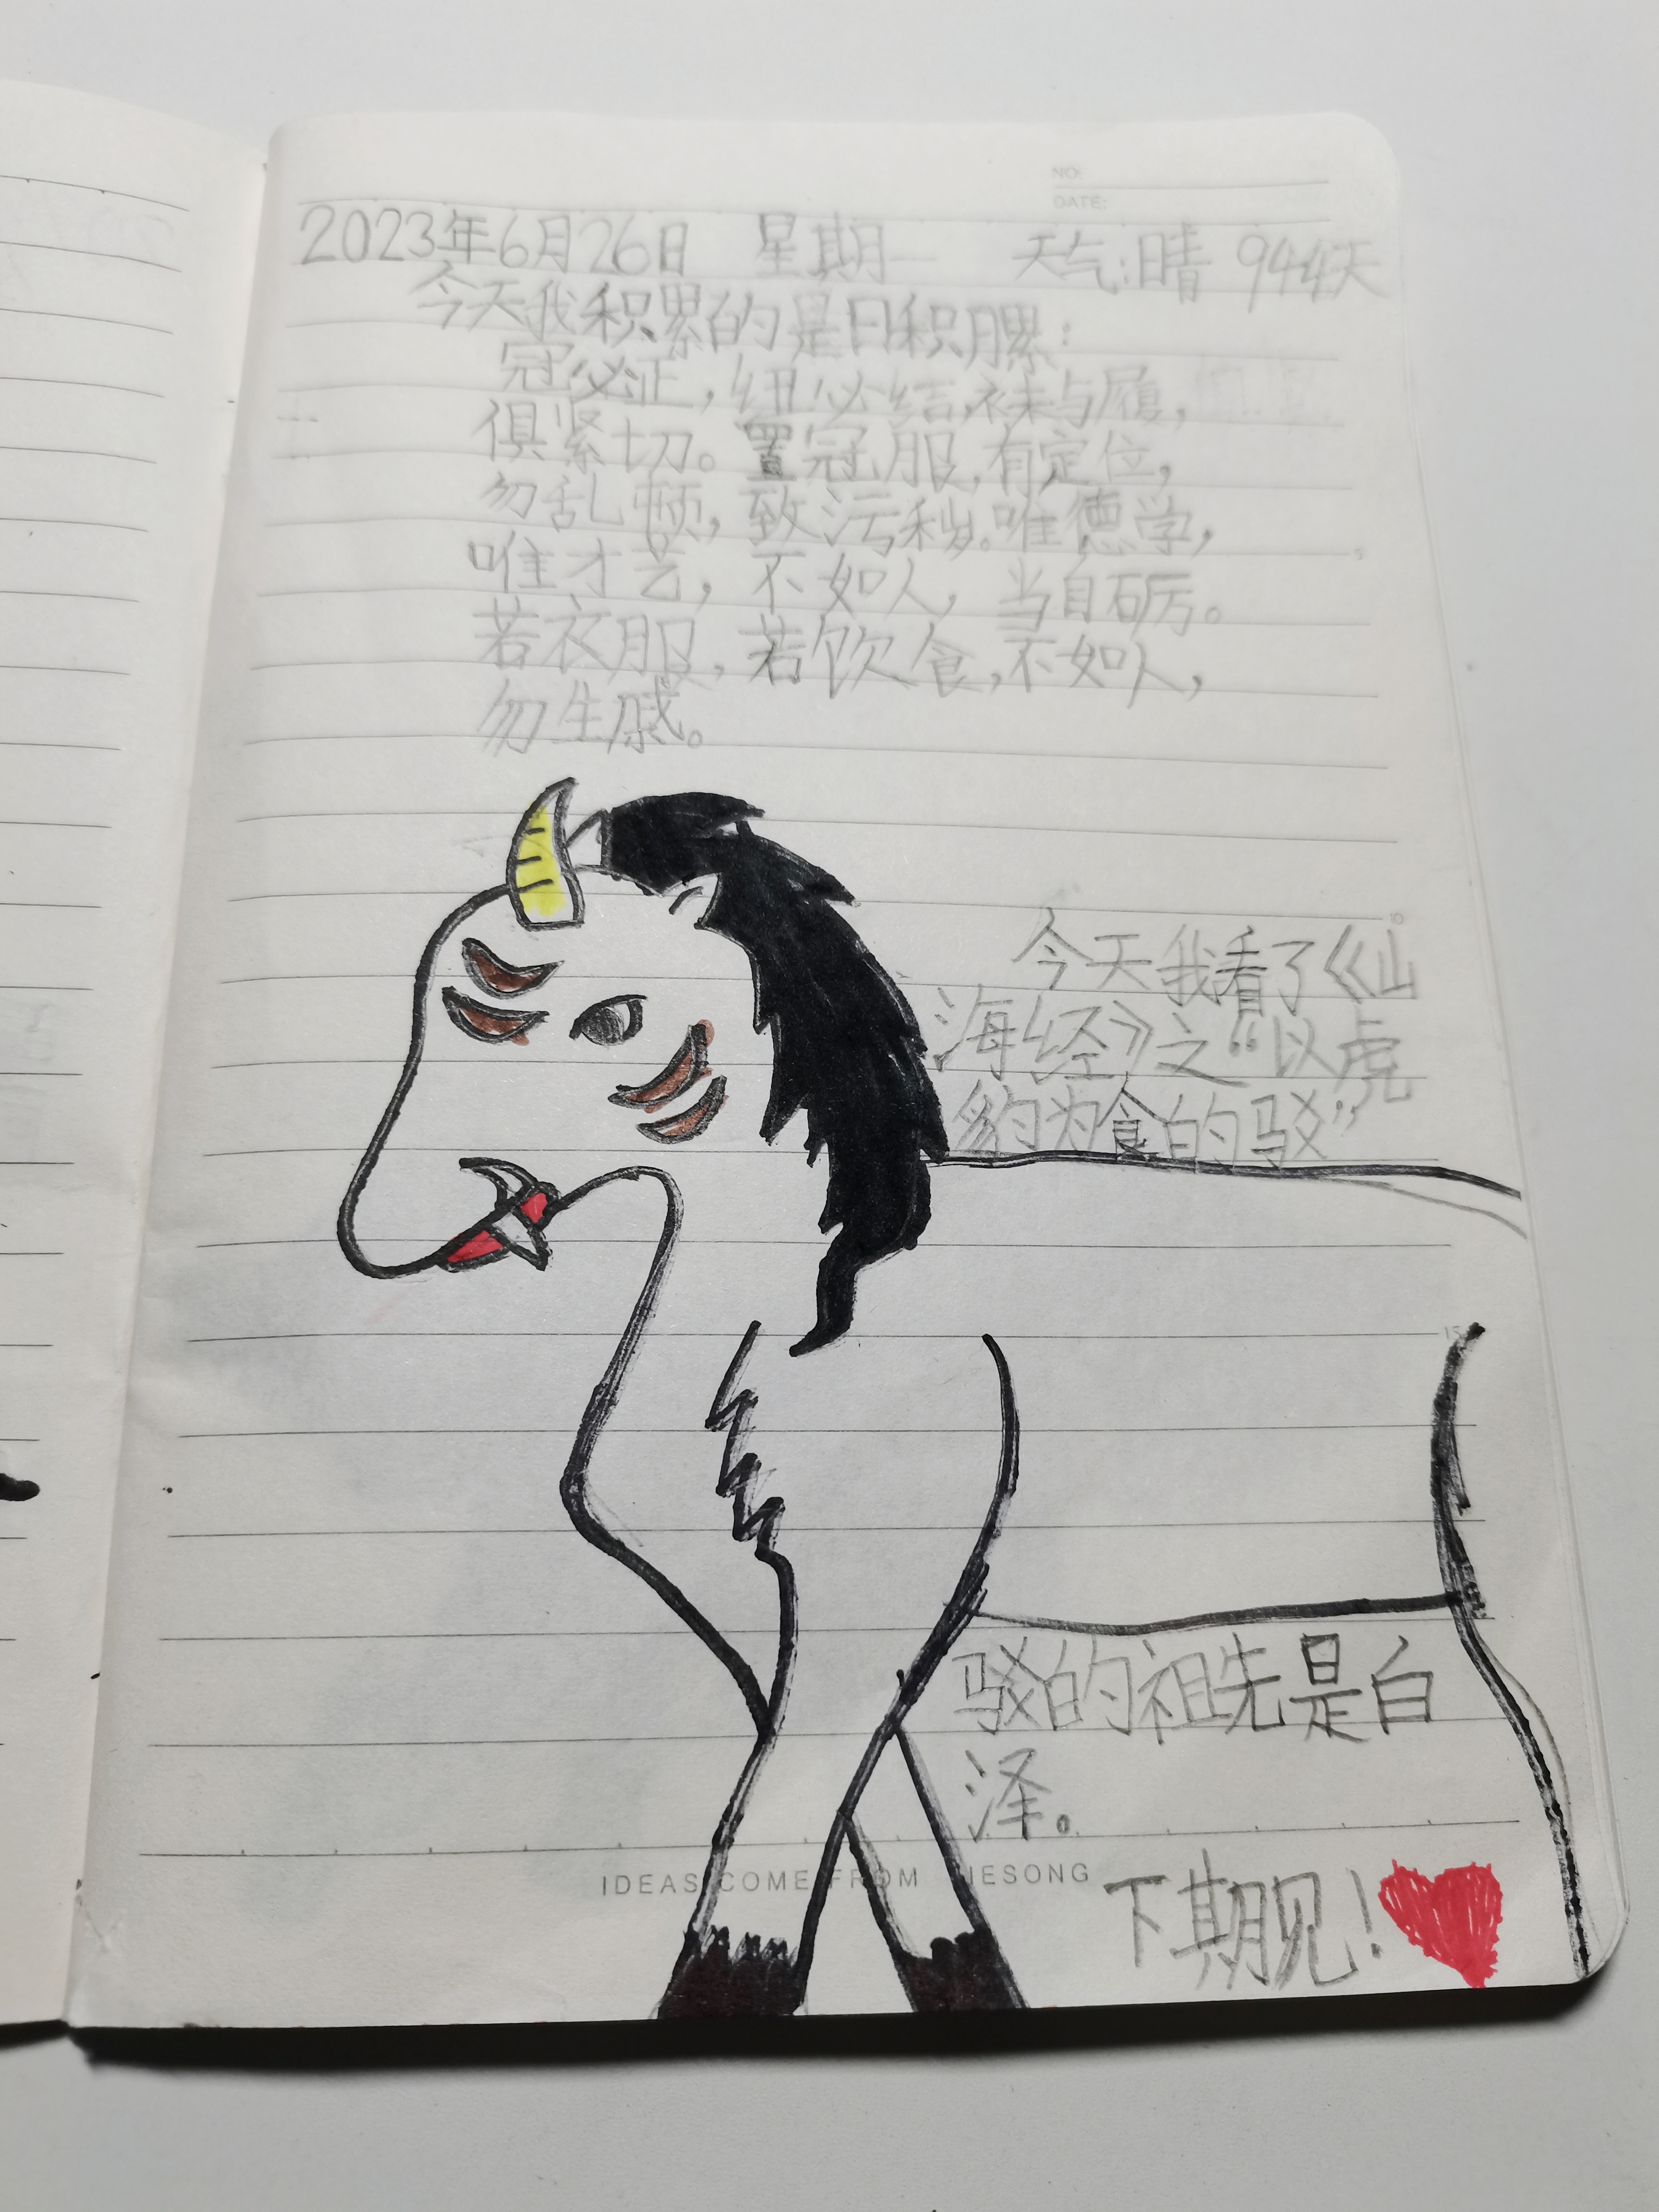 NO:
DATE:
2023年6月26日 星期一 天气:晴 944天
今天我积累的是日积月累:
冠必正,纽必结,袜与履,
俱紧切。置冠服,有定位,
勿乱顿,致污秽。唯德学,
唯才艺,不如人,当自砺。
若衣服,若饮食,不如人,
勿生戚。
今天我看了《山
海经》之“以虎
豹为食的驳”
驳的祖先是白
泽。
IDEAS COME FROM HESONG
下期见!